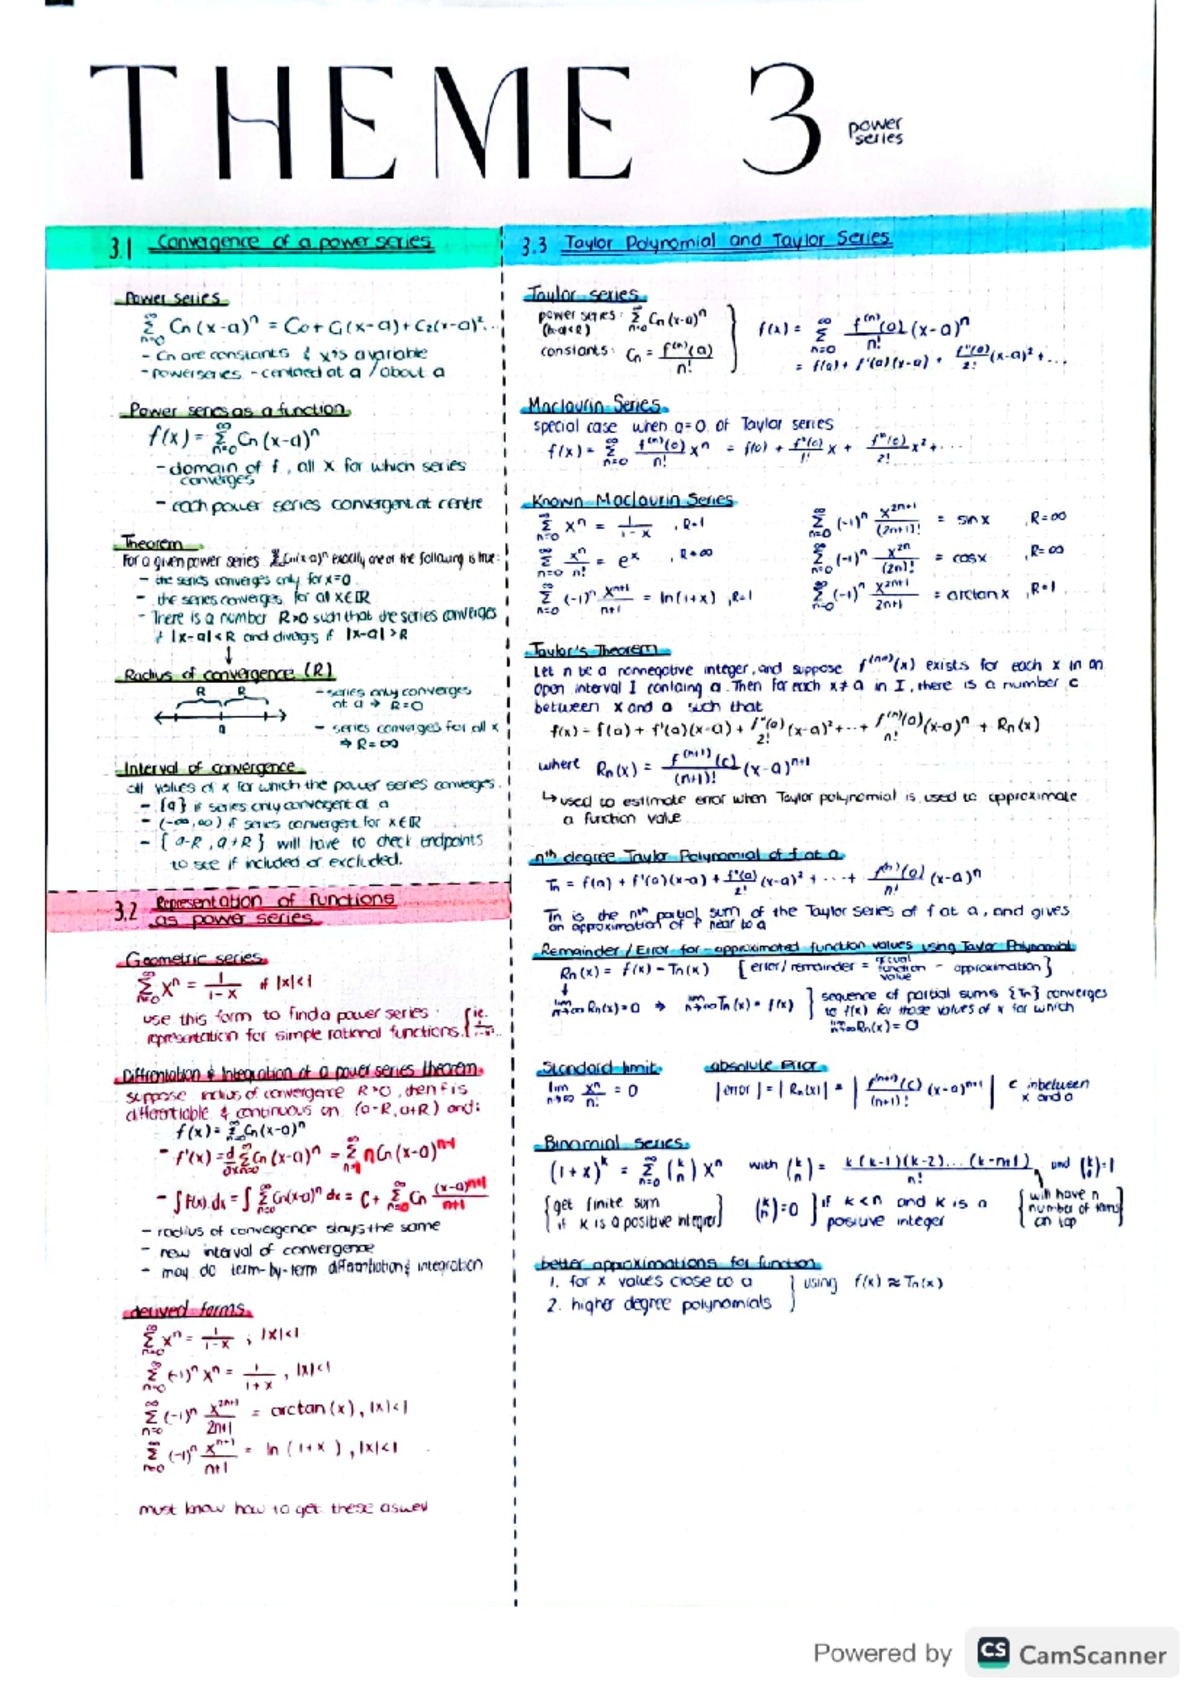 THEME 3
power
series
3.1 Convergence of a power series
Power series
∞Σn=0 Cn(x-a)^n = C0+C1(x-a)+C2(x-a)²...
- Cn are constants & x is a variable
- power series - centred at a / about a
Power series as a function
f(x) = ∞Σn=0 Cn(x-a)^n
- domain of f, all x for which series
converges
- each power series convergent at centre
Theorem
For a given power series ∞Σn=0 Cn(x-a)^n exactly one of the following is true:
- the series converges only for x=0
- the series converges for all x∈ℝ
- There is a number R>0 such that the series converges
if |x-a|<R and diverges if |x-a|>R
↓
Radius of convergence (R)
R R
a
- series only converges
at a → R=0
- series converges for all x
⇒ R=∞
Interval of convergence
all values of x for which the power series converges.
- {a} if series only convergent at a
- (-∞,∞) if series convergent for x∈ℝ
- { a-R, a+R } will have to check endpoints
to see if included or excluded.
3.2 Representation of functions
as power series
Geometric series
∞Σn=0 x^n = 1/(1-x) if |x|<1
use this form to find a power series
representation for simple rational functions.
Diffrentiation & Integration of a power series theorem
suppose radius of convergence R>0, then f is
differentiable & continuous on (a-R, a+R) and:
f(x) = ∞Σn=0 Cn(x-a)^n
- f'(x) = d/dx ∞Σn=0 Cn(x-a)^n = ∞Σn=1 nCn(x-a)^(n-1)
- ∫f(x).dx = ∫ ∞Σn=0 Cn(x-a)^n dx = C + ∞Σn=0 Cn (x-a)^(n+1)/(n+1)
- radius of convergence stays the same
- new interval of convergence
- may do term-by-term diffrentiation & integration
derived forms
∞Σn=0 x^n = 1/(1-x) ; |x|<1
∞Σn=0 (-1)^n x^n = 1/(1+x) , |x|<1
∞Σn=0 (-1)^n x^(2n+1)/(2n+1) = arctan(x), |x|<1
∞Σn=0 (-1)^n x^(n+1)/(n+1) = ln(1+x), |x|<1
must know how to get these aswell
3.3 Taylor Polynomial and Taylor Series
Taylor series
power series: ∞Σn=0 Cn(x-a)^n
(|x-a|<R)
constants: Cn = f^(n)(a)/n!
f(x) = ∞Σn=0 f^(n)(a)/n! (x-a)^n
= f(a) + f'(a)(x-a) + f''(a)/2! (x-a)² + ...
Maclaurin Series
special case when a=0 of Taylor series
f(x) = ∞Σn=0 f^(n)(0)/n! x^n = f(0) + f'(0)/1! x + f''(0)/2! x² + ...
Known Maclaurin Series
∞Σn=0 x^n = 1/(1-x) , R=1
∞Σn=0 x^n/n! = e^x , R=∞
∞Σn=0 (-1)^n x^(n+1)/(n+1) = ln(1+x) , R=1
∞Σn=0 (-1)^n x^(2n+1)/(2n+1)! = sin x , R=∞
∞Σn=0 (-1)^n x^(2n)/(2n)! = cos x , R=∞
∞Σn=0 (-1)^n x^(2n+1)/(2n+1) = arctan x , R=1
Taylor's Theorem
Let n be a nonnegative integer, and suppose f^(n+1)(x) exists for each x in an
open interval I containg a. Then for each x≠a in I, there is a number c
between x and a such that
f(x) = f(a) + f'(a)(x-a) + f''(a)/2! (x-a)² + ... + f^(n)(a)/n! (x-a)^n + Rn(x)
where Rn(x) = f^(n+1)(c)/(n+1)! (x-a)^(n+1)
↳ used to estimate error when Taylor polynomial is used to approximate
a function value
n^th degree Taylor Polynomial of f at a
Tn = f(a) + f'(a)(x-a) + f''(a)/2! (x-a)² + ... + f^(n)(a)/n! (x-a)^n
Tn is the n^th partial sum of the Taylor series of f at a, and gives
an approximation of f near to a
Remainder / Error for approximated function values using Taylor Polynomial
Rn(x) = f(x) - Tn(x) [ error/remainder = actual function value - approximation ]
↓
lim n→∞ Rn(x)=0 ⇒ lim n→∞ Tn(x) = f(x)
sequence of partial sums {Tn} converges
to f(x) for those values of x for which
lim n→∞ Rn(x)=0
Standard limit
lim n→∞ x^n/n! = 0
absolute Error
|error| = |Rn(x)| = | f^(n+1)(c)/(n+1)! (x-a)^(n+1) | c inbetween
x and a
Binomial series
(1+x)^k = ∞Σn=0 (k n) x^n with (k n) = k(k-1)(k-2)...(k-n+1)/n! and (k 0)=1
[ get finite sum
if k is a positive integer ]
(k n)=0 ] if k<n and k is a
positive integer
{ will have n
number of terms
on top }
better approximations for function
1. for x values close to a
2. higher degree polynomials
} using f(x) ≈ Tn(x)
Powered by CS CamScanner